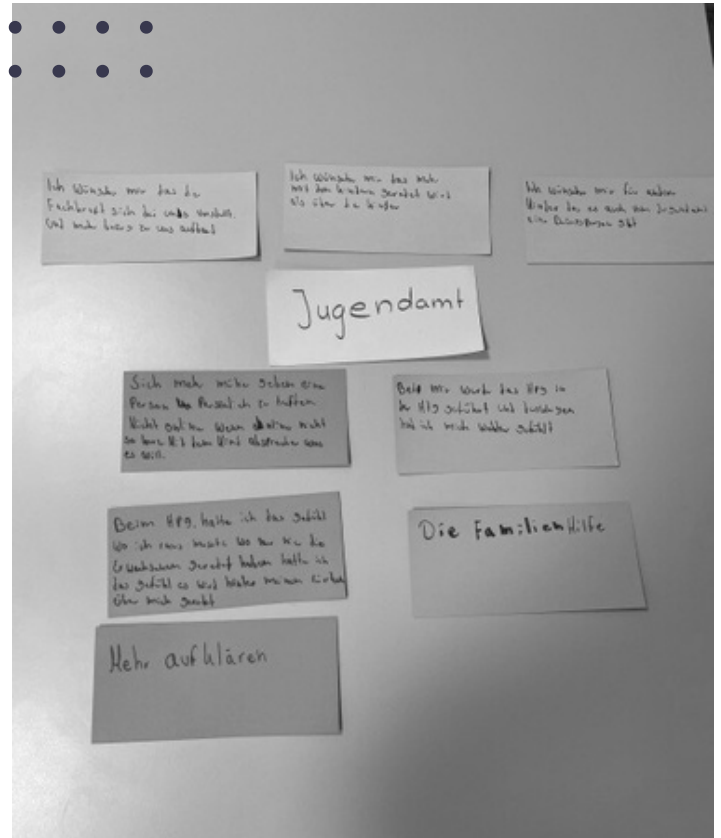 Ich Wünsche mir das die
Fachkraft sich bei uns vorstellt.
Und mehr zu uns aufbaut
Ich wünsche mir das mehr
mit den Kindern geredet wird
als über die Kinder
Ich wünsche mir für andere
Kinder das es auch vom Jugendamt
eine Bezugsperson gibt
Jugendamt
Sich mehr mühe geben eine
Person Persönlich zu treffen
Nicht online wenn online nicht
so kurz Mit dem Kind absprechen was
es will.
Beip mir wurde das HPG in
der geführt und
hab ich mich wohler gefühlt
Beim HPG. hatte ich das gefühl
wo ich raus musste wo nur die
Erwachsenen geredet haben hatte ich
das gefühl es wird hinter meinem Rücken
über mich geredet
Die FamilienHilfe
Mehr aufklären